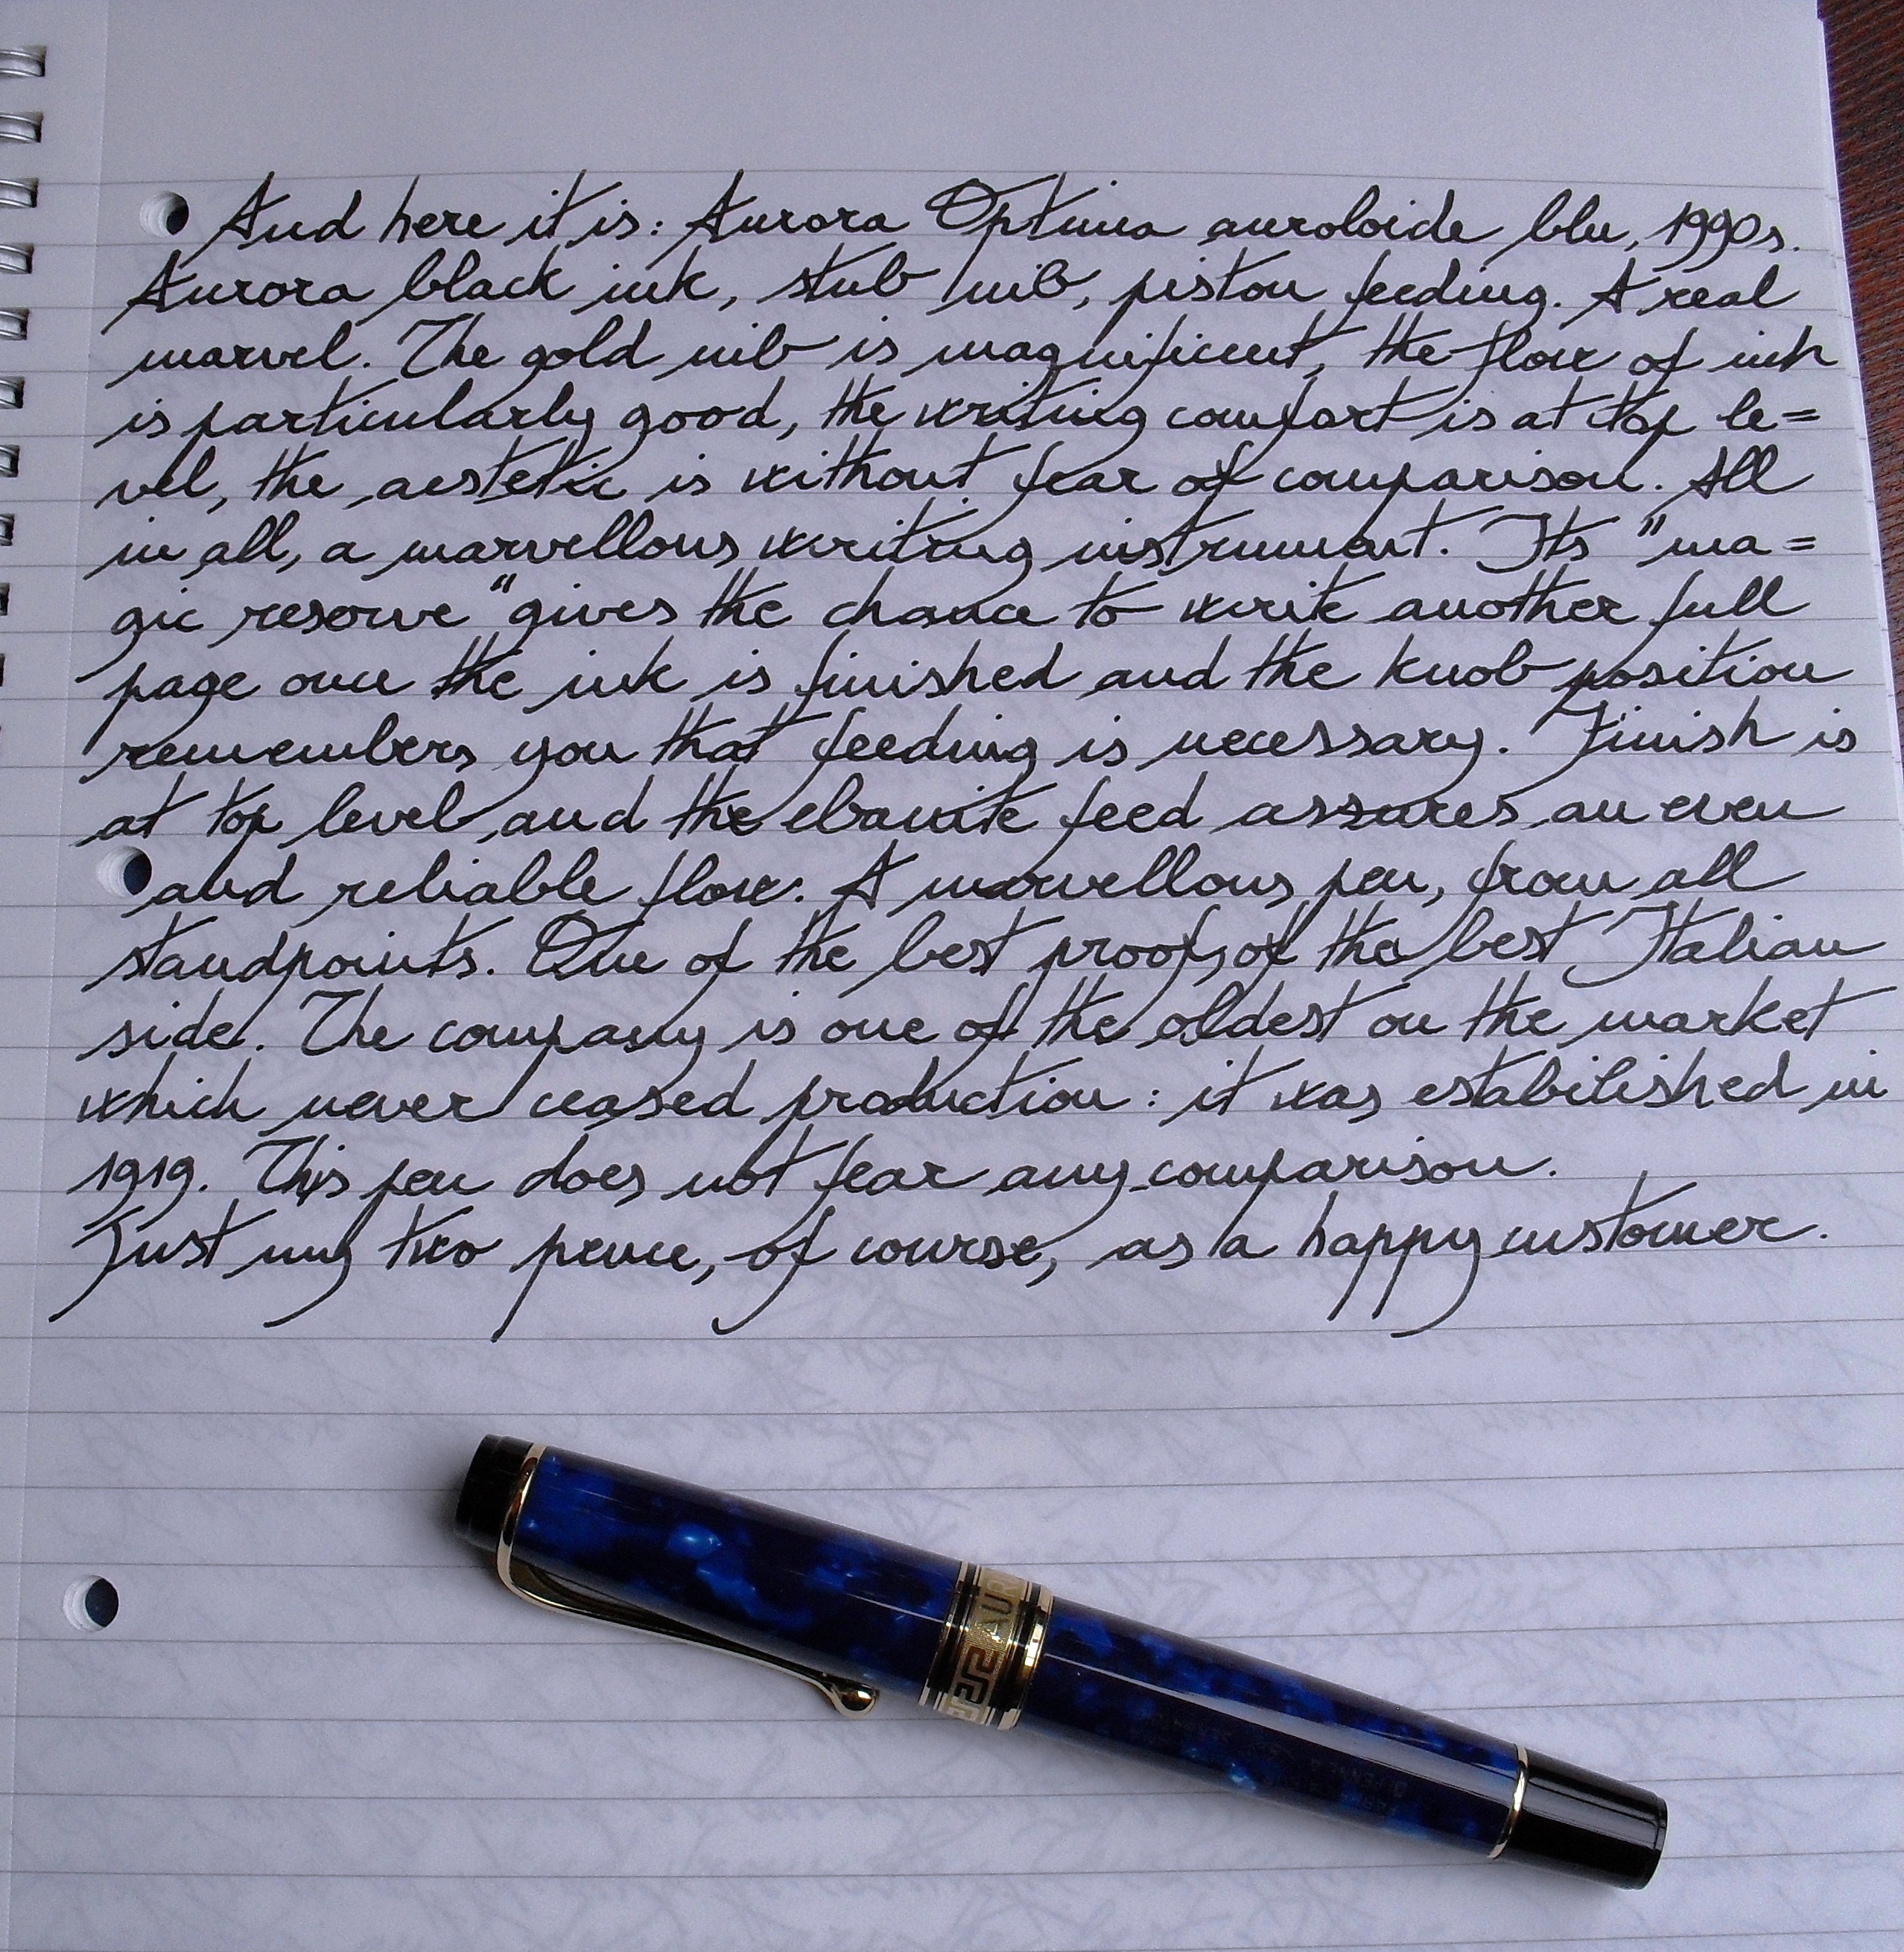 And here it is: Aurora Optima auroloide blu, 1990s.
Aurora black ink, stub nib, piston feeding. A real
marvel. The gold nib is magnificent, the flow of ink
is particularly good, the writing comfort is at top le=
vel, the aestetic is without fear of comparison. All
in all, a marvellous writing instrument. Its "ma=
gic reserve" gives the chance to write another full
page once the ink is finished and the knob position
remembers you that feeding is necessary. Finish is
at top level, and the ebanite feed assures an even
and reliable flow. A marvellous pen, from all
standpoints. One of the best proofs of the best Italian
side. The company is one of the oldest on the market
which never ceased production: it was estabilished in
1919. This pen does not fear any comparison.
Just my two pence, of course, as a happy customer.
AUR